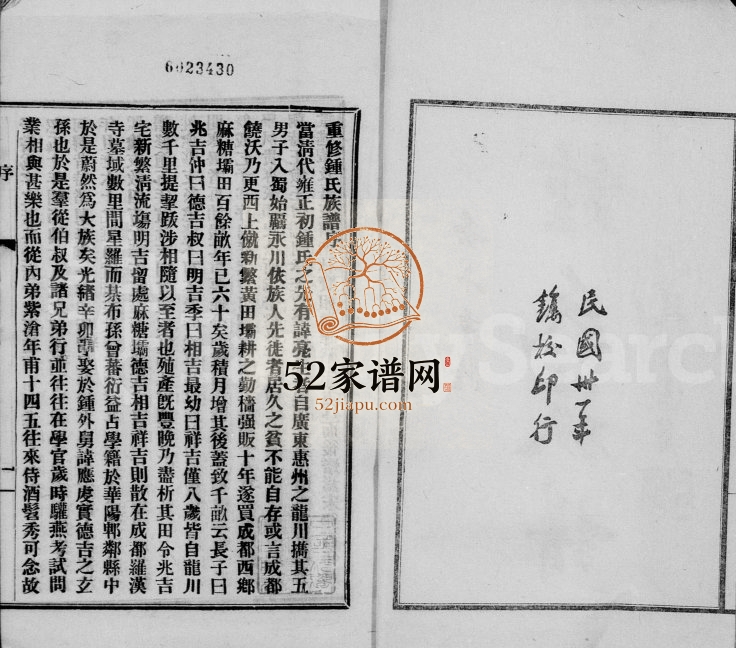 6023430
民國卅一年
鐫校印行
重修鍾氏族譜序
當清代雍正初鍾氏之先有諱亮 者自廣東惠州之龍川攜其五
男子入蜀始 永川依族人先徙者居久之貧不能自存或言成都
饒沃乃更西上僦新繁黃田壩耕之勤穡强販十年遂買成都西鄉
麻糖壩田百餘畝年已六十矣歲積月增其後蓋致千畝云長子曰
兆吉仲曰德吉叔曰明吉季曰相吉最幼曰祥吉僅八歲皆自龍川
數千里提挈跋涉相隨以至者也殖產既豐晚乃盡析其田令兆吉
宅新繁清流場明吉留處麻糖壩德吉相吉祥吉則散在成都羅漢
寺墓域數里間星羅而棊布孫曾蕃衍益占學籍於華陽郫鄰縣中
於是蔚然爲大族矣光緒辛卯 娶於鍾外舅諱應虔實德吉之玄
孫也於是羣從伯叔及諸兄弟行並往往在學官歲時驩燕考試問
業相與甚樂也而從內弟紫滄年甫十四五往來侍酒髫秀可念故
序
一
52家谱网
52jiapu.com
Search